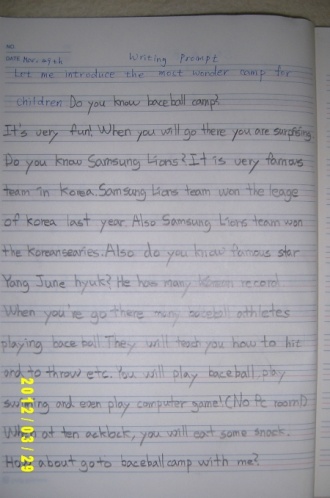 NO.
DATE Mar. 29th Writing Prompt
Let me introduce the most wonder camp for
children Do you know baceball camp?
It's very fun! When you will go there you are surprising.
Do you know Samsung Lions? It is very famous
team in Korea. Samsung Lions team won the leage
of korea last year. Also Samsung Lions team won
the koreansearies. Also do you know famous star
Yang June hyuk? He has many Korean record.
When you're go there many baceball athletes
playing bace ball They will teach you how to hit
and to throw etc. You will play baceball, play
swimming and even play computer game! (No Pc room!)
When at ten acklock, you will eat some snack.
How about go to baceball camp with me?
2012/03/29